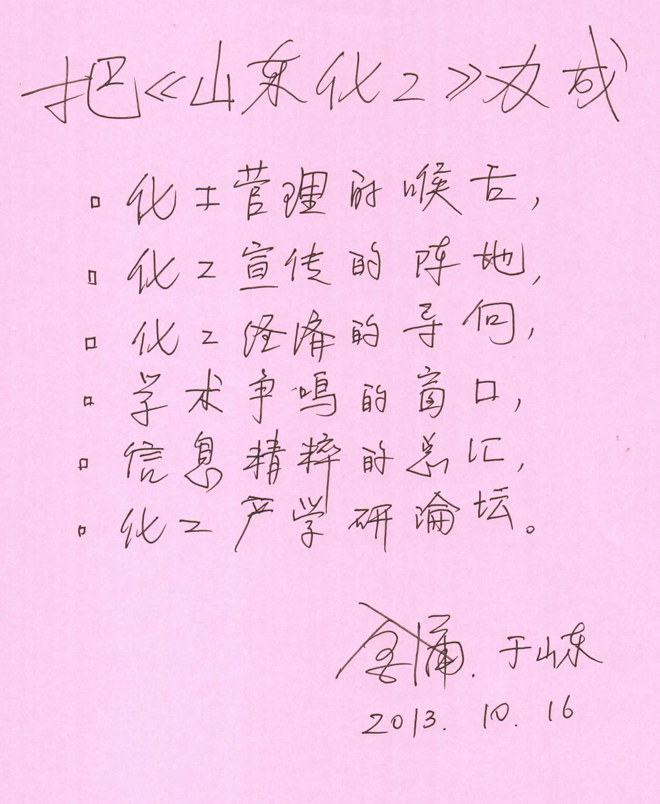 把《山东化工》办成
▫ 化工管理的喉舌，
▫ 化工宣传的阵地，
▫ 化工经济的导向，
▫ 学术争鸣的窗口，
▫ 信息精粹的总汇，
▫ 化工产学研论坛。
金涌. 于山东
2013. 10. 16